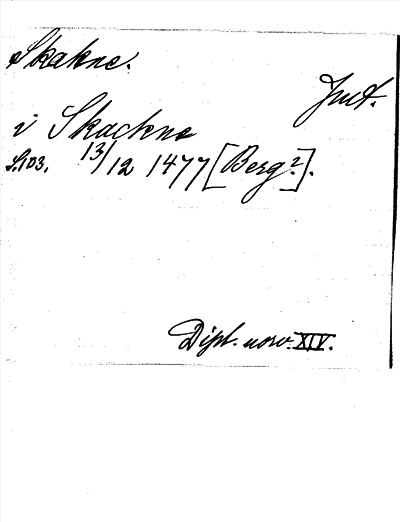 Skakne.
Jmt.
i Skackne
S. 103. 13/12 1477 [Berg?].
Dipl. norv. XIV.